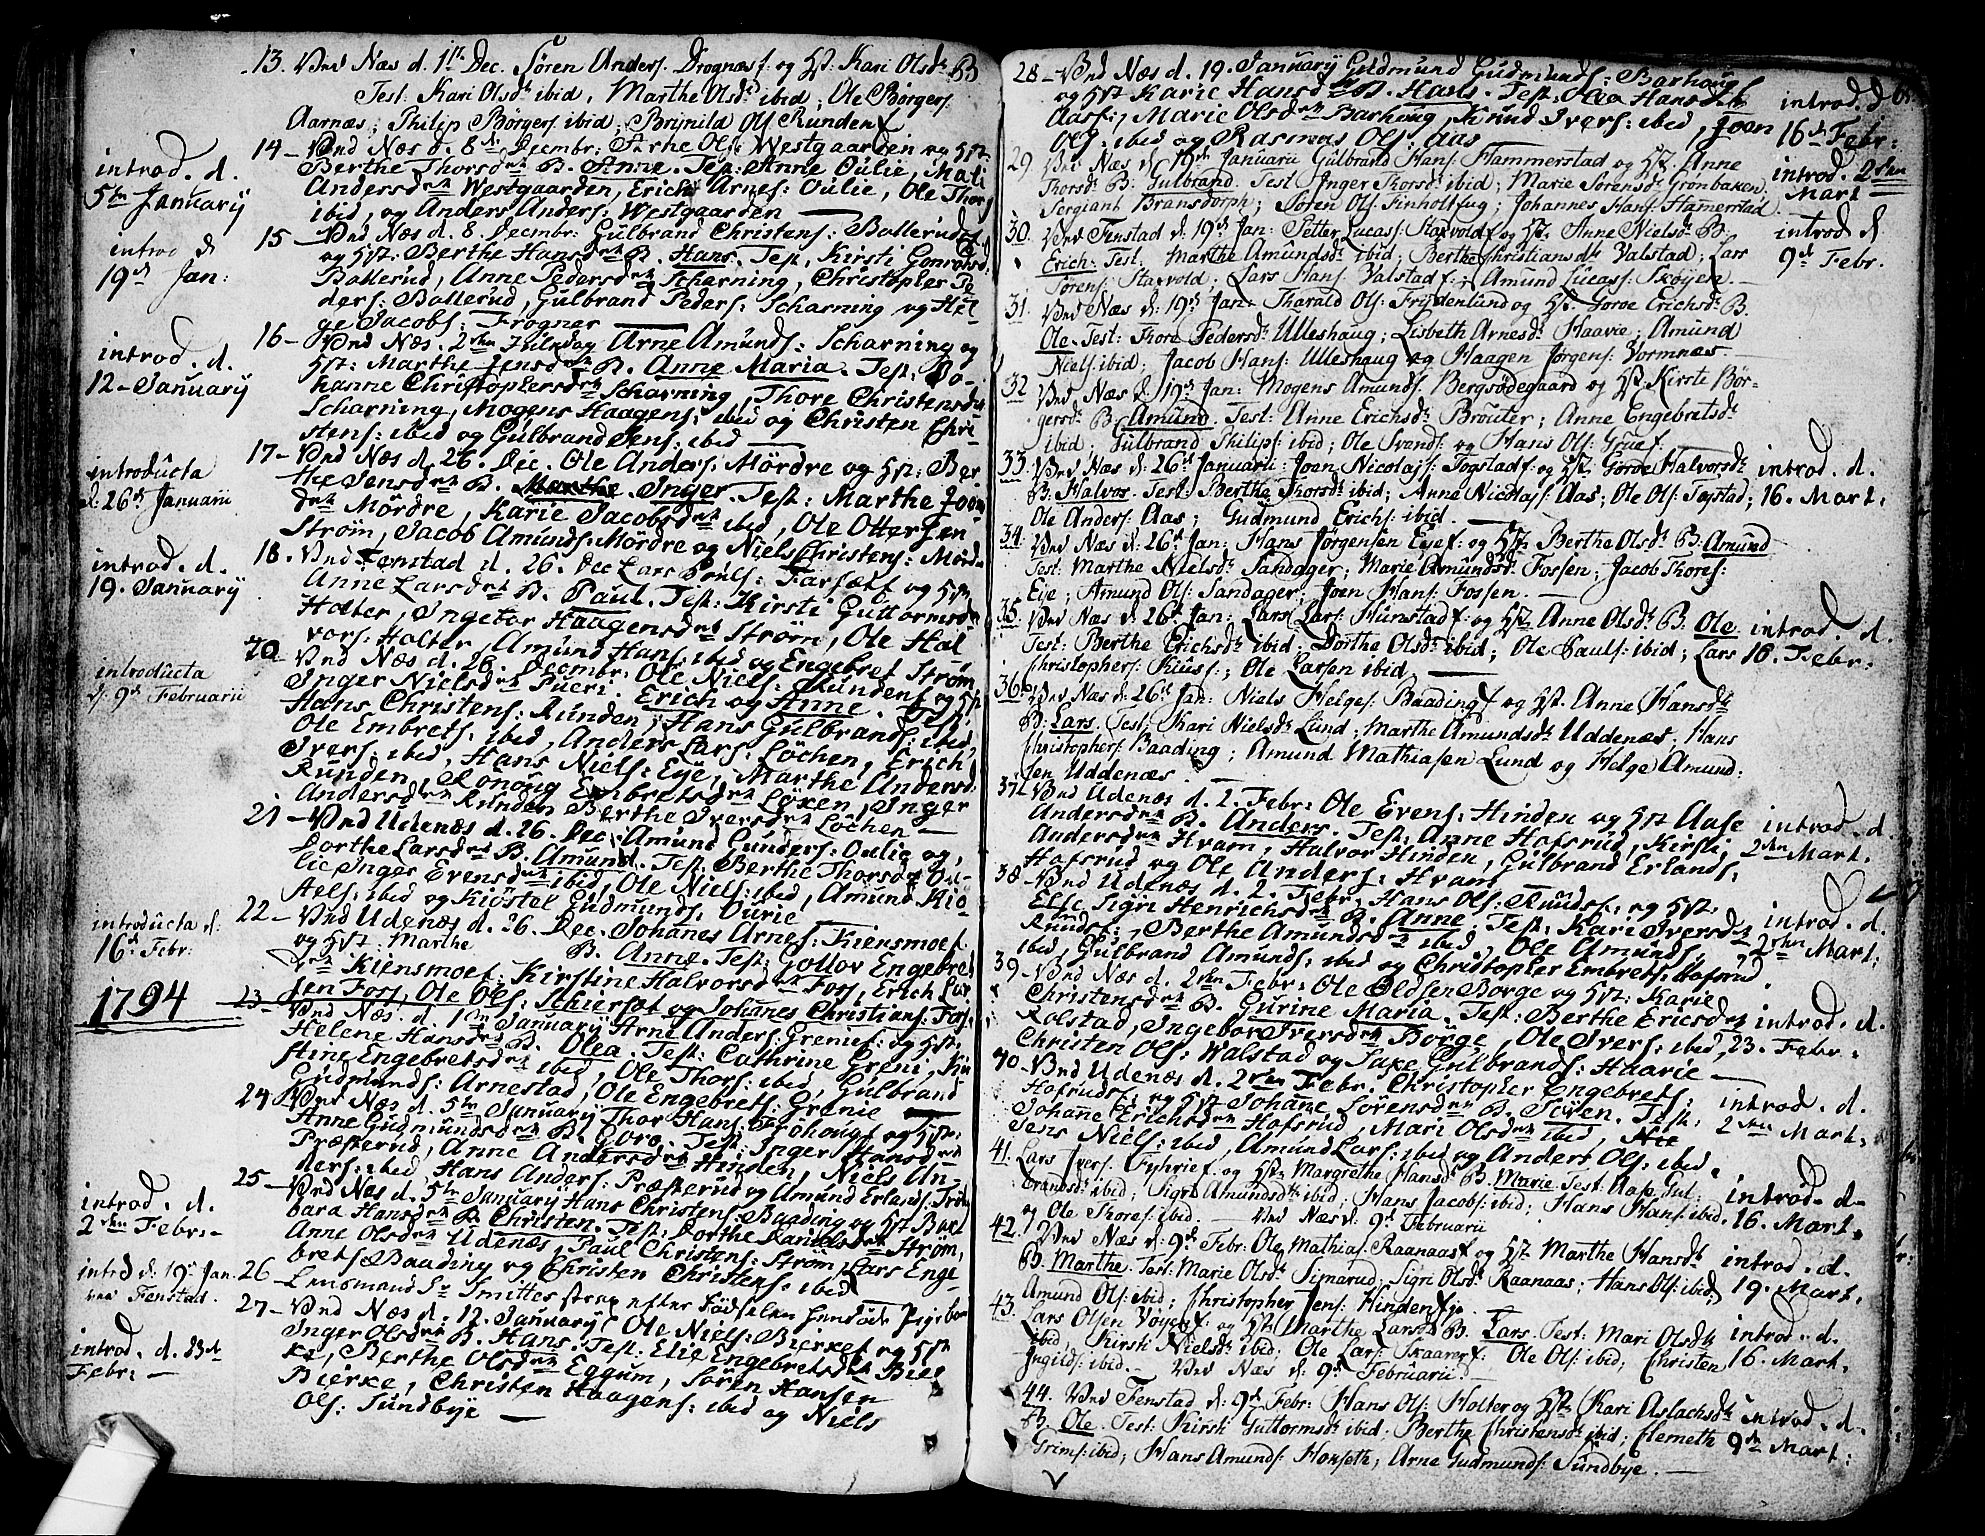 13. Vnd Næs d. 1ste Dec. Sören Anders. Drognæs f. og Hst: Kari Olsd: B
Test: Kari Olsd: ibid, Marthe Olsd: ibid; Ole Börgers.
Aarnæs; Philip Börgers ibid; Brynild Ols. Runden f
14 – Vnd Næs d. 8de Decembr: Ols: Westgaarden og Hst:
Berthe Thorsdtr B. Anne. Test: Anne Oulie, Mali
Andersdtr Westgaarden, Erich Arnes: Oulie, Ole Thors
ibid, og Anders Anders: Westgaarden
introd. d.
5te January
15 – Vnd Næs d. 8. Decembr: Gulbrand Christens: Ballerud f.
og Hst: Berthe Hansdtr B. Hans. Test. Kirsti
Ballerud, Anne Pedersdtr Scharning, Christopher Pe
ders: Ballerud, Gulbrand Peders: Scharning og Hel-
ge Jacobs: Frogner
introd d
19de Jan:
16 – Vnd Næs. 2den Juledag Arne Amunds: Scharning og
Hst: Marthe Jensdtr B. Anne Maria. Test: Jo-
hanne Christophersdtr Scharning, Thore Christensdtr
Scharning, Mogens Haagens: ibid og Christen Chri-
stens: ibid og Gulbrand Jens: ibid
introd. d.
12 – January
17 – Vnd Næs d. 26. Dec. Ole Anders: Mördre og Hst: Ber
the Jensdtr B. Inger. Test: Marthe Joens
dtr Mördre, Karie Jacobsdtr ibid, Ole Ottersen
Ström, Jacob Amunds: Mördre og Niels Christens: Mördre
introducta
d. 26de Januarii
18. Vnd Fenstad d. 26. Dec Lars Pouls: Farsæt f og Hst:
Anne Larsdtr B. Paul. Test: Kirsti Guttormsd
Holter, Ingebor Haagensdtr Ström, Ole Hal
vors: Holter, Amund Hans: ibid og Engebret Ström
introd. d.
19. January
20 Vnd Næs d. 26. Decembr: Ole Niels: Runden f og Hst
Inger Nielsdtr Pueri. Erich og Anne. Test:
Hans Christens: Runden, Hans Gulbrands: ibid,
Ole Embrets: ibid, Anders Lars: Löchen, Erich
Ivers: ibid, Hans Niels: Eye, Marthe Andersd.
Runden, Ronoug Embretsdtr Löken, Inger
Andersdtr Runden Berthe Iversdtr Löchen –
introducta
d: 9de Februarii
21 – Vnd Udenæs d. 26. Dec. Amund Gunders: Oulie og
Dorthe Larsdtr B. Amund. Test: Berthe Thorsdtr Ou-
lie Inger Evensdtr ibid, Ole Niels: ibid, Amund Kiö-
stels: ibid og Kiöstel Gudmunds: Ourie
22 – Vnd Udenæs d. 26. Dec. Johanes Arnes: Kiensmoe f
og Hst: Marthe B. Anne. Test: Gollov Engebrets
dtr Kiensmoe f. Kirstine Halvorsdtr Fors, Erich Lar
sen Fors, Ole Ols: Schiersæt og Johanes Christians: Fors
introducta d:
16de Febr:
1794
23 – Vnd Næs. d. 1ste January Arne Anders: Grenie f: og Hst:
Helene Hansdtr B. Olea. Test: Cathrine Greni, Kir
stine Engebretsdtr ibid, Ole Thors: ibid, Gulbrand
Gudmunds: Arnestad, Ole Engebrets: Grenie
24 Vnd Næs d. 5te January Thor Hans: Froshoug f og Hst:
Anne Gudmundsdtr B. Goro. Test: Inger Hansdtr
Præsterud, Anne Andersdtr Hinden, Niels An-
ders: ibid Hans Anders: Præsterud og Amund Erlands:
25 – Vnd Næs d. 5te January Hans Christens: Baading og Hst Bar
bara Hansdtr B. Christen. Test: Dorthe Danielsdtr Ström,
Anne Olsdtr Udenæs, Paul Christens: Ström, Lars Enge
brets Baading og Christen Christens: ibid
introd. d.
2den Febr: –
26 – Lensmand Sr Smittes strax efter Födselen hendöde Pigebarn
introd d: 19de Jan.
ved Fenstad.
27 – Vnd Næs d. 12. January Ole Niels: Bierke f og Hst
Inger Olsdtr B. Hans. Test: Elie Engebretsdtr Bier
ke, Berthe Olsdtr Eggum, Sören Hansen
Bierke, Christen Haagens: ibid og Niels
Ols: Sundbye –
introd. d. 23de
Febr: –
28 – Vnd Næs d. 19. January Gudmund Gudmunds: Barhoug
og Hst Karie Hansdtr B. Hans. Test. Olea Hansdtr
Aas f:, Marie Olsdtr Barhoug, Knud Ivers: ibid, Joen
Ols: ibid og Rasmus Ols: Aas
introd. d
16de Febr:
29. Vnd Næs d: 19de Januarii Gulbrand Hans: Hammerstad og Hst. Anne
Thorsdtr B: Gulbrand. Test Inger Thorsd: ibid; Marie Sörensdtr Grönbaken
Sergiant Bransdorph; Sören Ols: Finholt fug; Johannes Hans: Hamerstad
introd. 2den
Mart
30. Vnd Fenstad d: 19de Jan: Petter Lucas: Starvold f og Hst. Anne Nielsdtr B:
Erich: Test: Marthe Amundsd: ibid; Berthe Christiansdtr Valstad; Lars
Sörens: Starvold; Lars Hans: Valstad f:; Amund Lucas: Sköyen. –
introd d
9de Febr.
31. Vnd Næs d: 19de Jan: Tharald Ols: Frydenlund og Hst: Goroe Erichsd: B.
Ole. Test: Thore Pedersdtr Ulleshaug; Lisbeth Arnesd: Haavie; Amund
Niels: ibid; Jacob Hans: Ulleshaug og Haagen Jörgens: Vormnæs –
32 Vnd Næs d: 19de Jan: Mogens Amunds: Bergsödegaard og Hst: Kirsti Bör-
gersd: B: Amund. Test: Anne Erichsd: Brouter; Anne Engebretsd:
ibid; Gulbrand Philips: ibid; Ole Svends: og Hans Ols: Grue f.
33. Vnd Næs d: 26de Januarii: Joen Nicolajs: Togstad f: og Hst. Goroe Halvorsd:
B: Halvor. Test: Berthe Thorsd: ibid; Anne Nicolajs: Aas; Ole Ols: Togstad;
Ole Anders: Aas; Gudmund Erichs: ibid. –
introd. d.
16. Mart.
34. Vnd Næs d: 26de Jan: Hans Jörgensen Eye f: og Hst. Berthe Olsd: B: Amund
Test: Marthe Nielsd: Sandager; Marie Amundsd: Fossen; Jacob Thores:
Eye; Amund Ols: Sandager; Joen Hans: Fossen. –
35. Vnd Næs d: 26de Jan: Lars Lars: Hunstad f: og Hst. Anne Olsd: B. Ole
Test: Berthe Erichsd: ibid; Dorthe Olsd: ibid; Ole Pauls: ibid; Lars
Christophers: Kius f:; Ole Larsen ibid –
introd. d.
16. Febr:
36. Vnd Næs d: 26de Jan: Niels Helges: Baading f og Hst. Anne Hansd:
B: Lars. Test: Kari Nielsd: Lund; Marthe Amundsd: Uddenæs; Hans
Christophers: Baading; Amund Mathiasen Lund og Helge Amund:
sen Uddenæs
37. Vnd Udenæs d. 2. Febr: Ole Evens: Hinden og Hst Aase
Andersdtr B. Anders. Test: Anne Hofsrud, Kirsti
Andersdtr Hvam, Halvor Hinden, Gulbrand Erlands:
Hofsrud og Ole Anders: Hvam
introd. d.
2den Mart.
38. Vnd Udenæs d. 2. Febr: Hans Ols: Ruud f: og Hst:
Elie Sigri Henrichsdtr B. Anne. Test: Kari Iversdtr
Ruud f:, Berthe Amundsdtr ibid, Ole Amunds:
ibid, Gulbrand Amunds: ibid og Christopher Embrets: Hofsrud
introd. d.
2den Mart:
39 – Vnd Næs d. 2den Febr: Ole Oldsen Borge og Hst: Karie
Christensdtr B. Gurine Maria. Test: Berthe Ericsdtr
Rolstad, Ingebor Iversdtr Börge, Ole Ivers: ibid,
Christen Ols: Walstad og Saxe Gulbrands: Haavie –
introd. d.
23. Febr.
40. Vnd Udenæs d. 2den Febr. Christopher Engebrets:
Hofsrud f: og Hst Johane Sörensdtr B. Sören. Test:
Johane Erichsdtr Hofsrud, Mari Olsdtr ibid,
Jens Niels: ibid, Amund Lars: ibid og Anders Ols: ibid.
introd. d.
2den Mart.
41. Lars Ivers: Fyhrie f. og Hst Margrethe Hansd: B. Marie. Test. Aase Gul:
brandsd: ibid; Sigri Amundsdtr ibid; Hans Jacobs: ibid; Hans Hans: ibid.
og Ole Thores: ibid – Vnd Næs d: 9de Februarii
introd. d.
16. Mart.
42. Vnd Næs d: 9de Febr: Ole Mathias: Raanaas f og Hst. Marthe Hansd:
B. Marthe. Test: Marie Olsd: Simarud; Sigri Olsd: Raanaas; Hans Ols: ibid;
Amund Ols: ibid; Christopher Jens: Hinden
introd. d.
19. Mart.
43. Lars Olsen Vöye f: og Hst. Marthe Larsd: B. Lars. Test: Mari Olsdtr
ibid; Kirsti Nielsd: ibid; Ole Lars: Skaarer f. Ole Ols: ibid; Christen
Ingilds: ibid. – Vnd Næs d: 9de Februarii –
introd. d.
16. Mart.
44. Vnd Fenstad d: 9de Febr: Hans Ols: Holter og Hst: Kari Aslachsd:
B. Ole. Test: Kirsti Guttormsd: ibid; Berthe Christensd: ibid; Clemeth
Grims: ibid; Hans Amunds: Honseth; Arne Gudmunds: Sundbye. –
introd. d.
9de Mart: